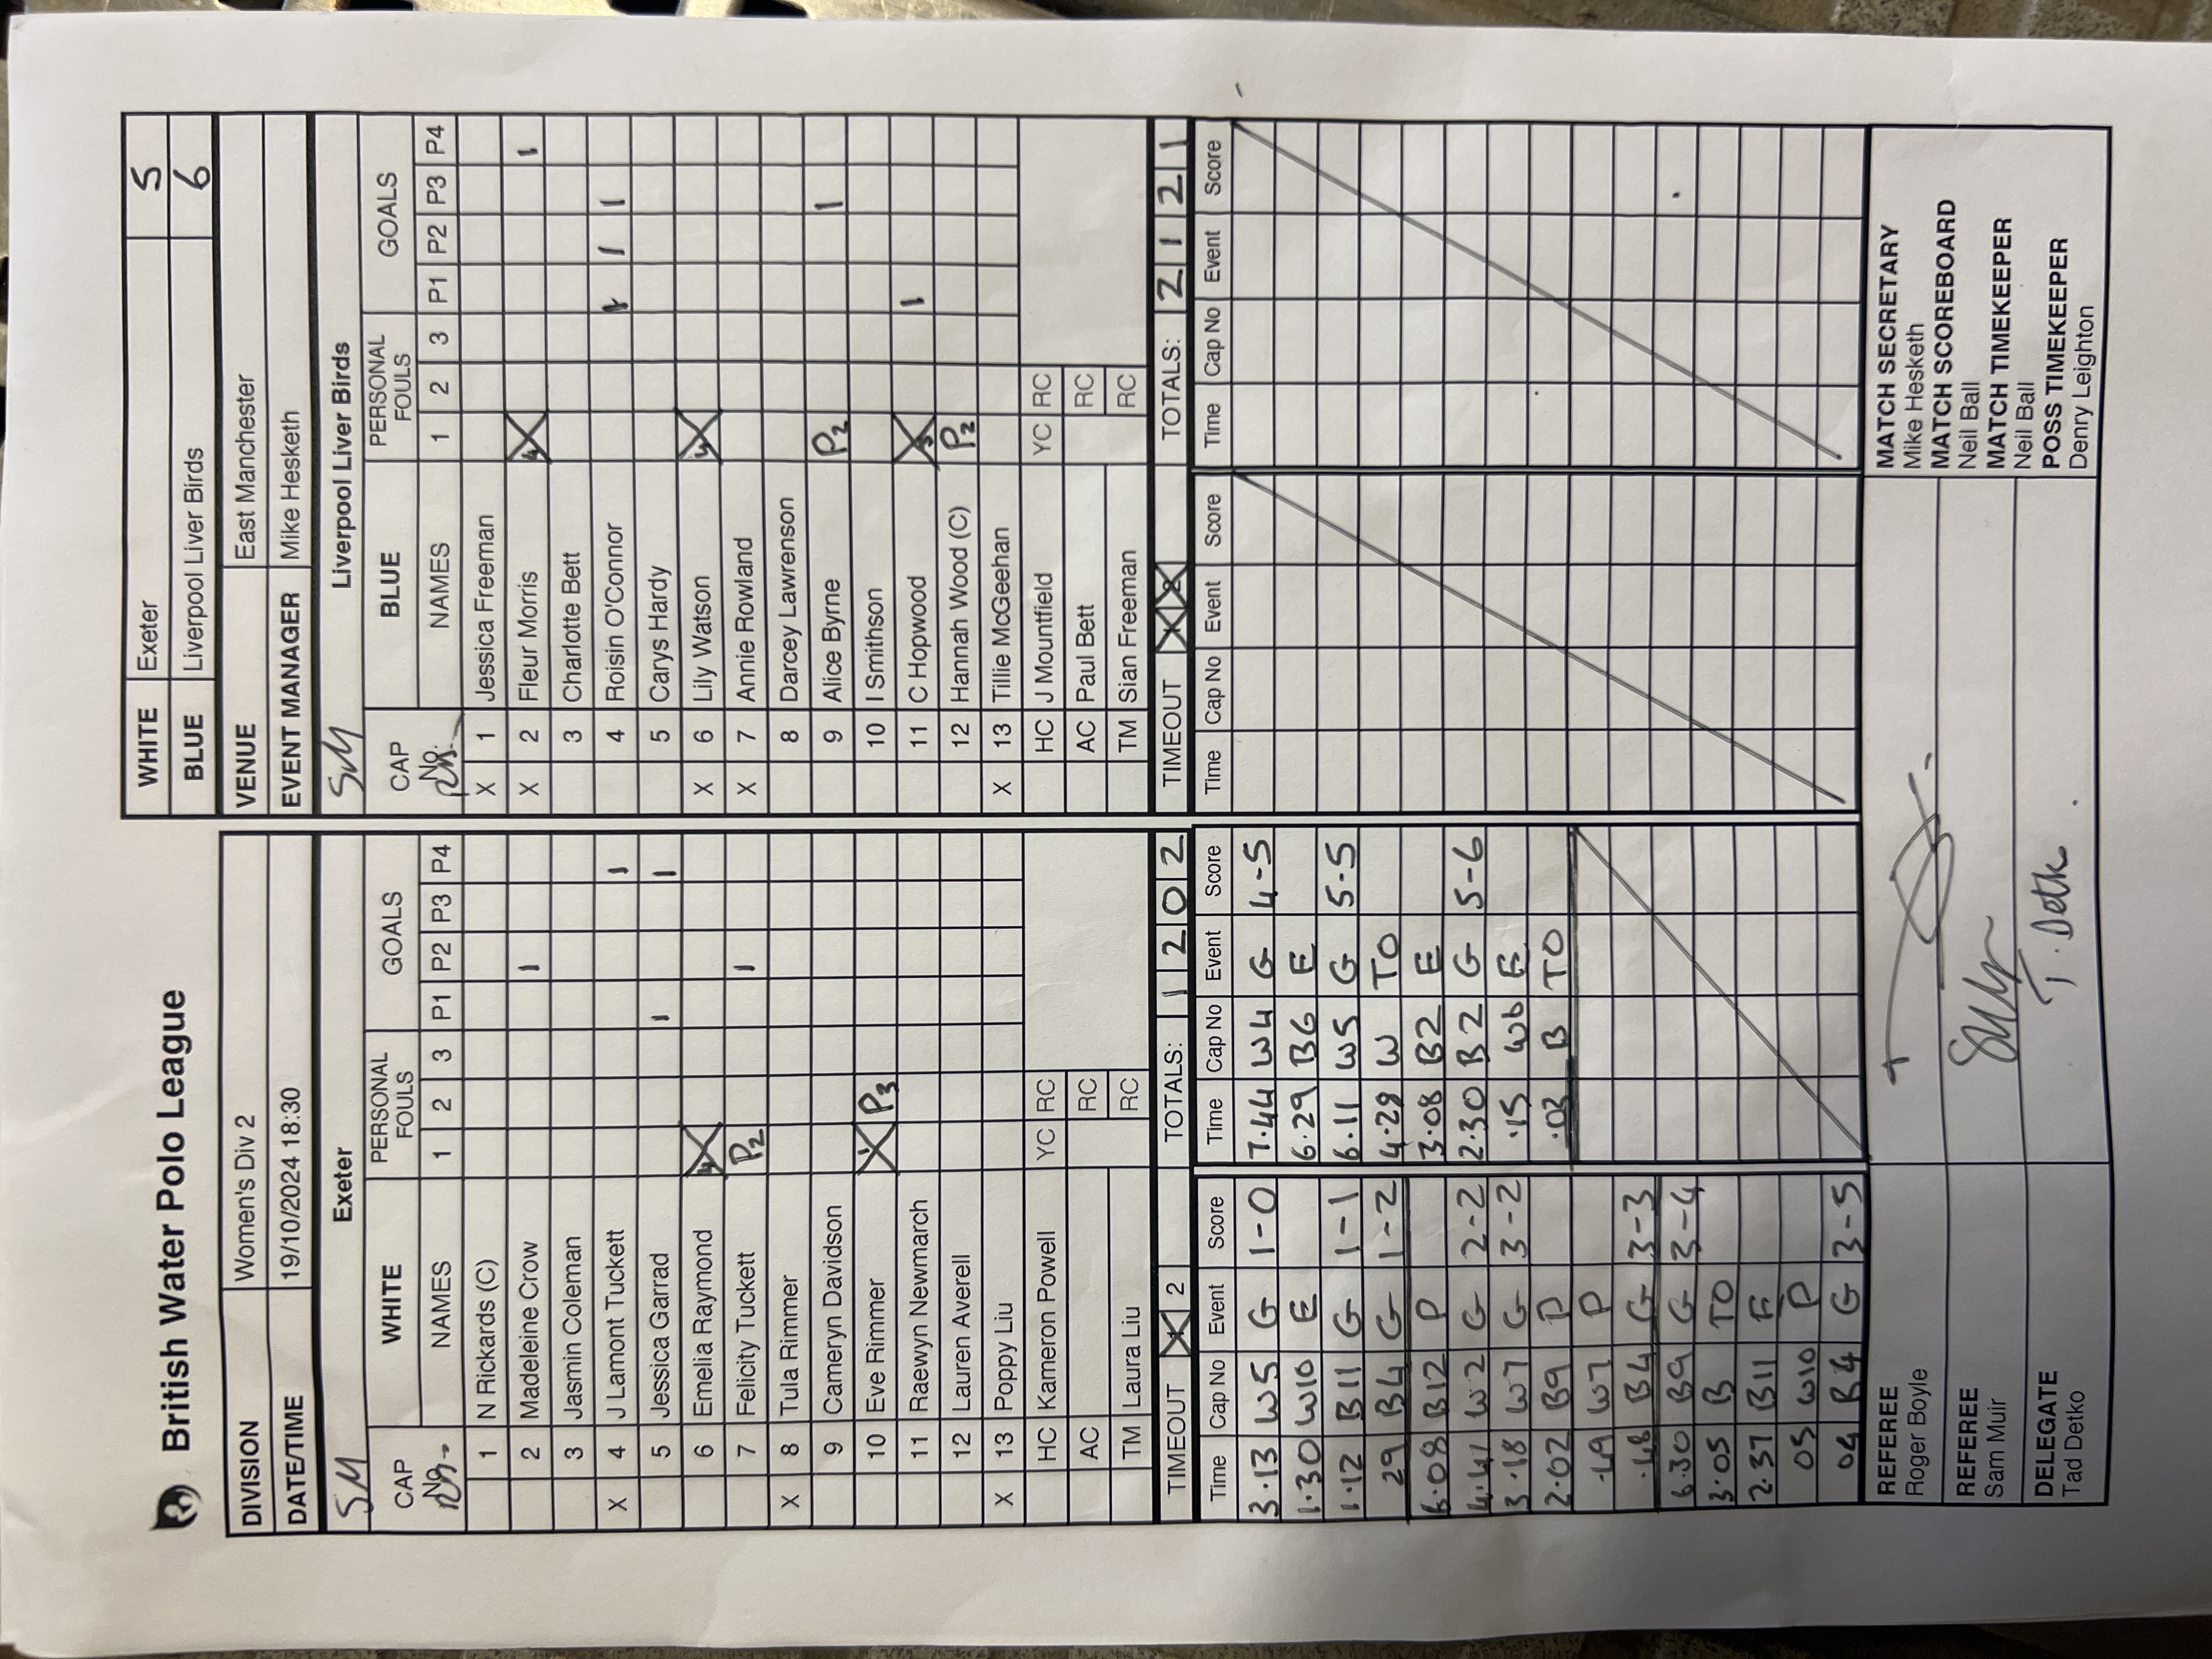 British Water Polo League
DIVISION Women's Div 2
DATE/TIME 19/10/2024 18:30
WHITE Exeter 5
BLUE Liverpool Liver Birds 6
VENUE East Manchester
EVENT MANAGER Mike Hesketh
SM Exeter
CAP No. WHITE NAMES PERSONAL FOULS 1 2 3 GOALS P1 P2 P3 P4
1 N Rickards (C)
2 Madeleine Crow 1
3 Jasmin Coleman
X 4 J Lamont Tuckett 1
5 Jessica Garrad 1 1
6 Emelia Raymond 4
7 Felicity Tuckett P2 1
X 8 Tula Rimmer
9 Cameryn Davidson
10 Eve Rimmer 1 P3
11 Raewyn Newmarch
12 Lauren Averell
X 13 Poppy Liu
HC Kameron Powell YC RC
AC RC
TM Laura Liu RC
TIMEOUT X 2 TOTALS: 1 2 0 2
SM Liverpool Liver Birds
CAP No. BLUE NAMES PERSONAL FOULS 1 2 3 GOALS P1 P2 P3 P4
X 1 Jessica Freeman
X 2 Fleur Morris 4 1
3 Charlotte Bett
4 Roisin O'Connor 1 1 1
5 Carys Hardy
X 6 Lily Watson 4
X 7 Annie Rowland
8 Darcey Lawrenson
9 Alice Byrne P2 1
10 I Smithson
11 C Hopwood 3 1
12 Hannah Wood (C) P2
X 13 Tillie McGeehan
HC J Mountfield YC RC
AC Paul Bett RC
TM Sian Freeman RC
TIMEOUT X X TOTALS: 2 1 2 1
Time Cap No Event Score
3.13 W5 G 1-0
1.30 W10 E
1.12 B11 G 1-1
29 B4 G 1-2
6.08 B12 P
4.41 W2 G 2-2
3.18 W7 G 3-2
2.02 B9 P
.49 W7 P
.48 B4 G 3-3
6.30 B9 G 3-4
3.05 B TO
2.37 B11 E
05 W10 P
04 B4 G 3-5
Time Cap No Event Score
7.44 W4 G 4-5
6.29 B6 E
6.11 W5 G 5-5
4.28 W TO
3.08 B2 E
2.30 B2 G 5-6
.15 W6 E
.03 B TO
Time Cap No Event Score
Time Cap No Event Score
REFEREE
Roger Boyle
REFEREE
Sam Muir
DELEGATE
Tad Detko
T. Detko
MATCH SECRETARY
Mike Hesketh
MATCH SCOREBOARD
Neil Ball
MATCH TIMEKEEPER
Neil Ball
POSS TIMEKEEPER
Denry Leighton